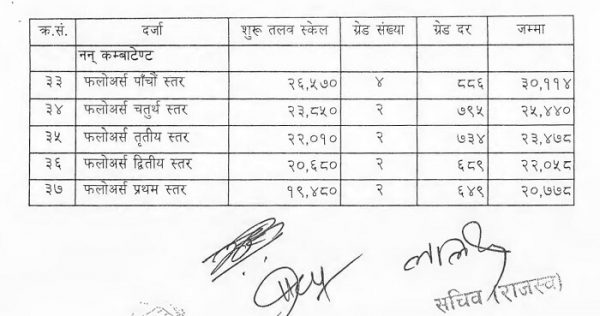 क्र.सं. दर्जा शुरू तलव स्केल ग्रेड संख्या ग्रेड दर जम्मा
नन् कम्बाटेण्ट
३३ फलोअर्स पाँचौं स्तर २६,५७० ४ ८८६ ३०,११४
३४ फलोअर्स चतुर्थ स्तर २३,८५० २ ७९५ २५,४४०
३५ फलोअर्स तृतीय स्तर २२,०१० २ ७३४ २३,४७८
३६ फलोअर्स द्वितीय स्तर २०,६८० २ ६८९ २२,०५८
३७ फलोअर्स प्रथम स्तर १९,४८० २ ६४९ २०,७७८
सचिव (राजस्व)